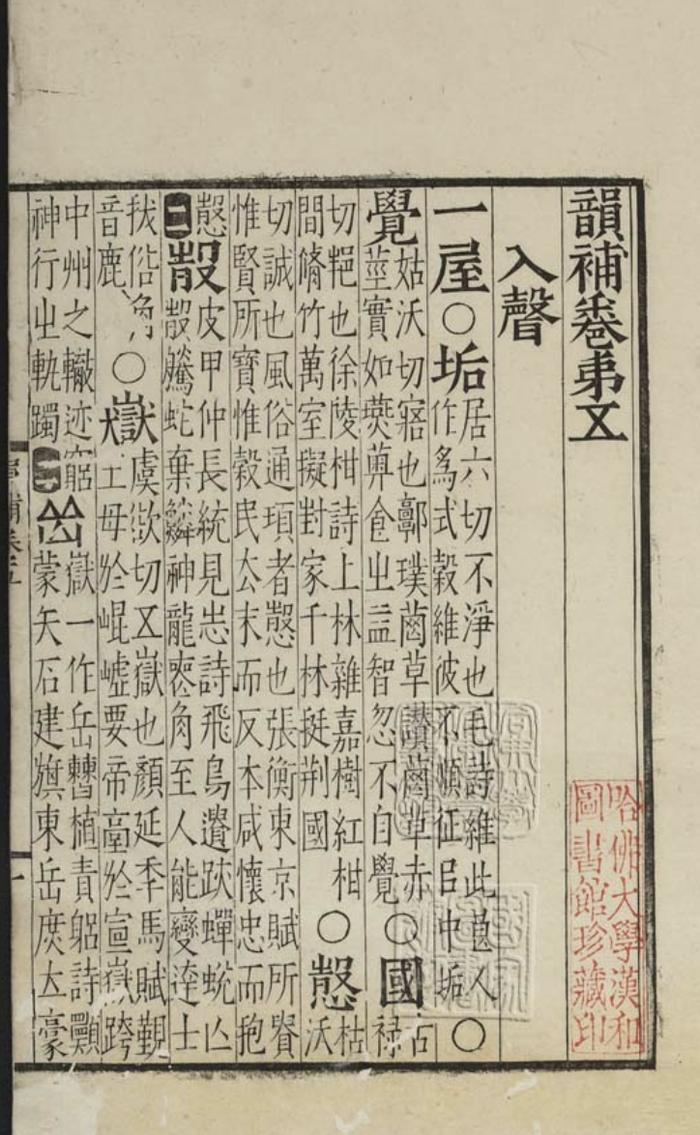 韻補卷弟五
入聲
一屋○垢居六切不淨也毛詩維此
作為式穀維彼不順征以中垢○
覺姑沃切寤也郭璞菌草讚菌草赤
莖實如莢食之益智忽不自覺○國古
祿
切也徐陵柑詩上林雜嘉樹紅柑
間脩竹萬室擬對家千林挺荊國○愨枯
沃
切誠也風俗通瑣者愨也張衡東京賦所貴
惟賢所寶惟穀民去末而反本咸懷忠而抱
愨二㱿皮甲仲長統見志詩飛鳥遺跡蟬蛻亡
㱿騰蛇棄鱗神龍喪角至人能變達士
拔俗角
音鹿○嶽虞欲切五嶽也顏延年馬賦覲
王母於崐墟要帝臺於宣嶽跨
中州之轍迹窮
神行之軌躅二嶽一作岳曹植責躬詩顯
蒙矢石建旗東岳庶立豪
哈佛大學漢和
圖書館珍藏印